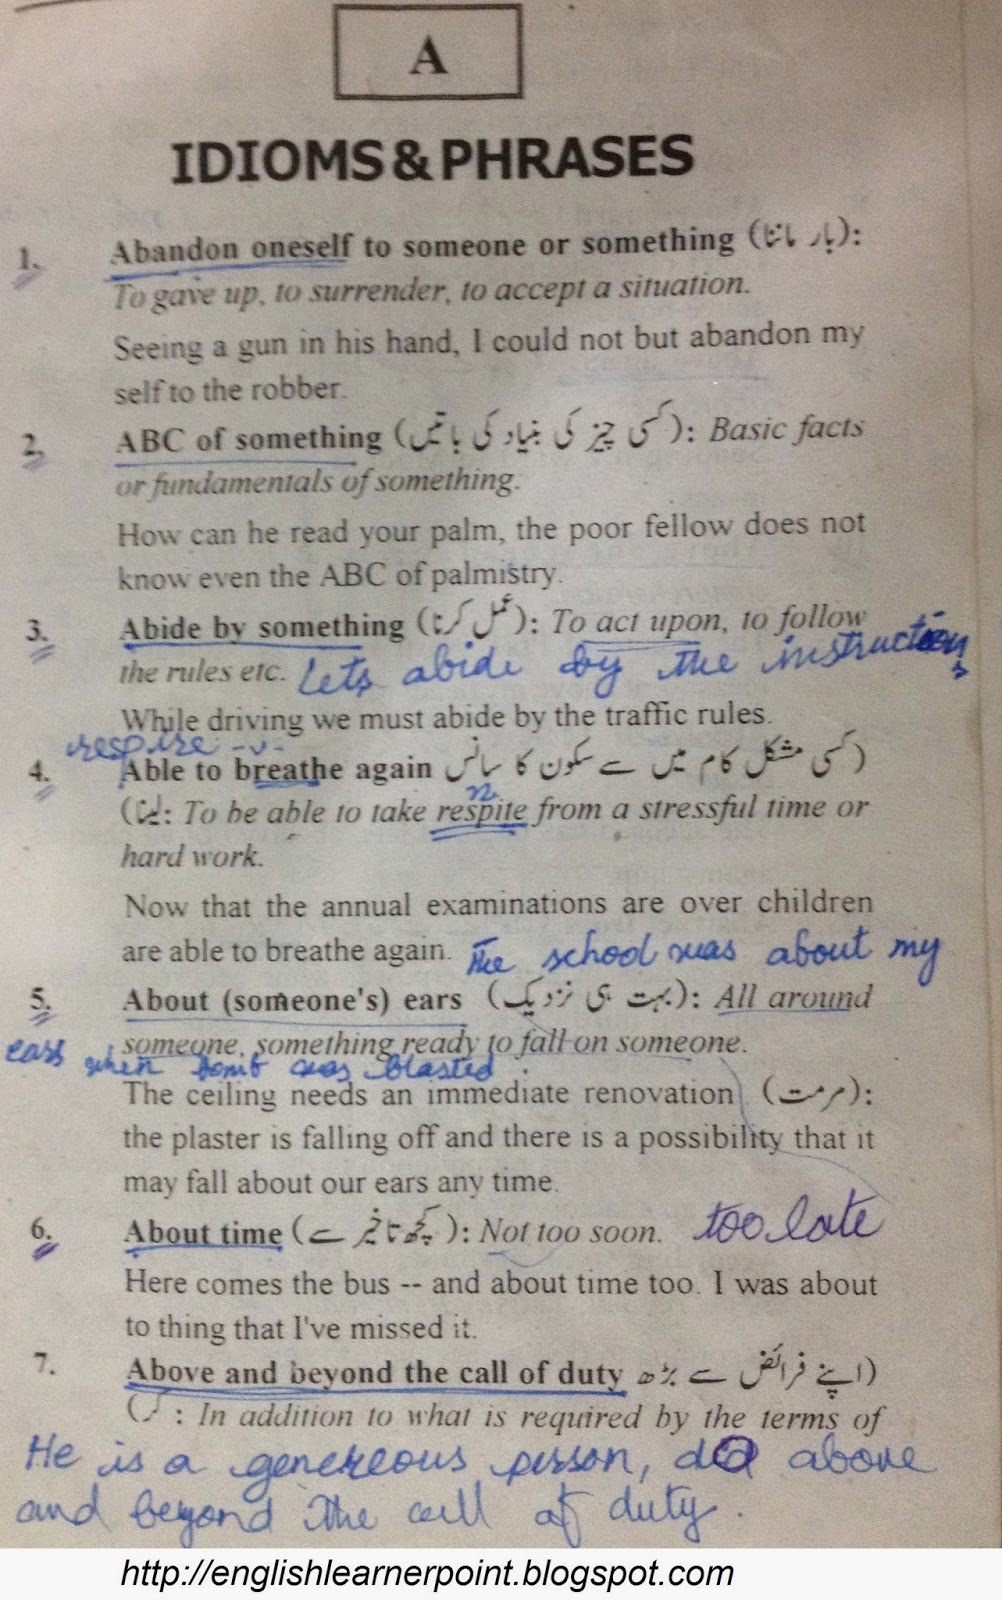 A
IDIOMS & PHRASES
1. Abandon oneself to someone or something (ہار ماننا):
To gave up, to surrender, to accept a situation.
Seeing a gun in his hand, I could not but abandon my
self to the robber.
2. ABC of something (کسی چیز کی بنیاد کی باتیں): Basic facts
or fundamentals of something.
How can he read your palm, the poor fellow does not
know even the ABC of palmistry.
3. Abide by something (عمل کرنا): To act upon, to follow
the rules etc. Lets abide by the instructions
While driving we must abide by the traffic rules.
respire -v-
4. Able to breathe again (کسی مشکل کام میں سے سکون کا سانس
لینا): To be able to take respite from a stressful time or
n
hard work.
Now that the annual examinations are over children
are able to breathe again. The school was about my
5. About (someone's) ears (بہت ہی نزدیک): All around
someone, something ready to fall on someone.
ears when bomb was blasted.
The ceiling needs an immediate renovation (مرمت):
the plaster is falling off and there is a possibility that it
may fall about our ears any time.
6. About time (کچھ تاخیر سے): Not too soon. too late
Here comes the bus -- and about time too. I was about
to thing that I've missed it.
7. Above and beyond the call of duty (اپنے فرائض سے بڑھ
کر): In addition to what is required by the terms of
He is a genereous person, did above
and beyond the call of duty.
http://englishlearnerpoint.blogspot.com